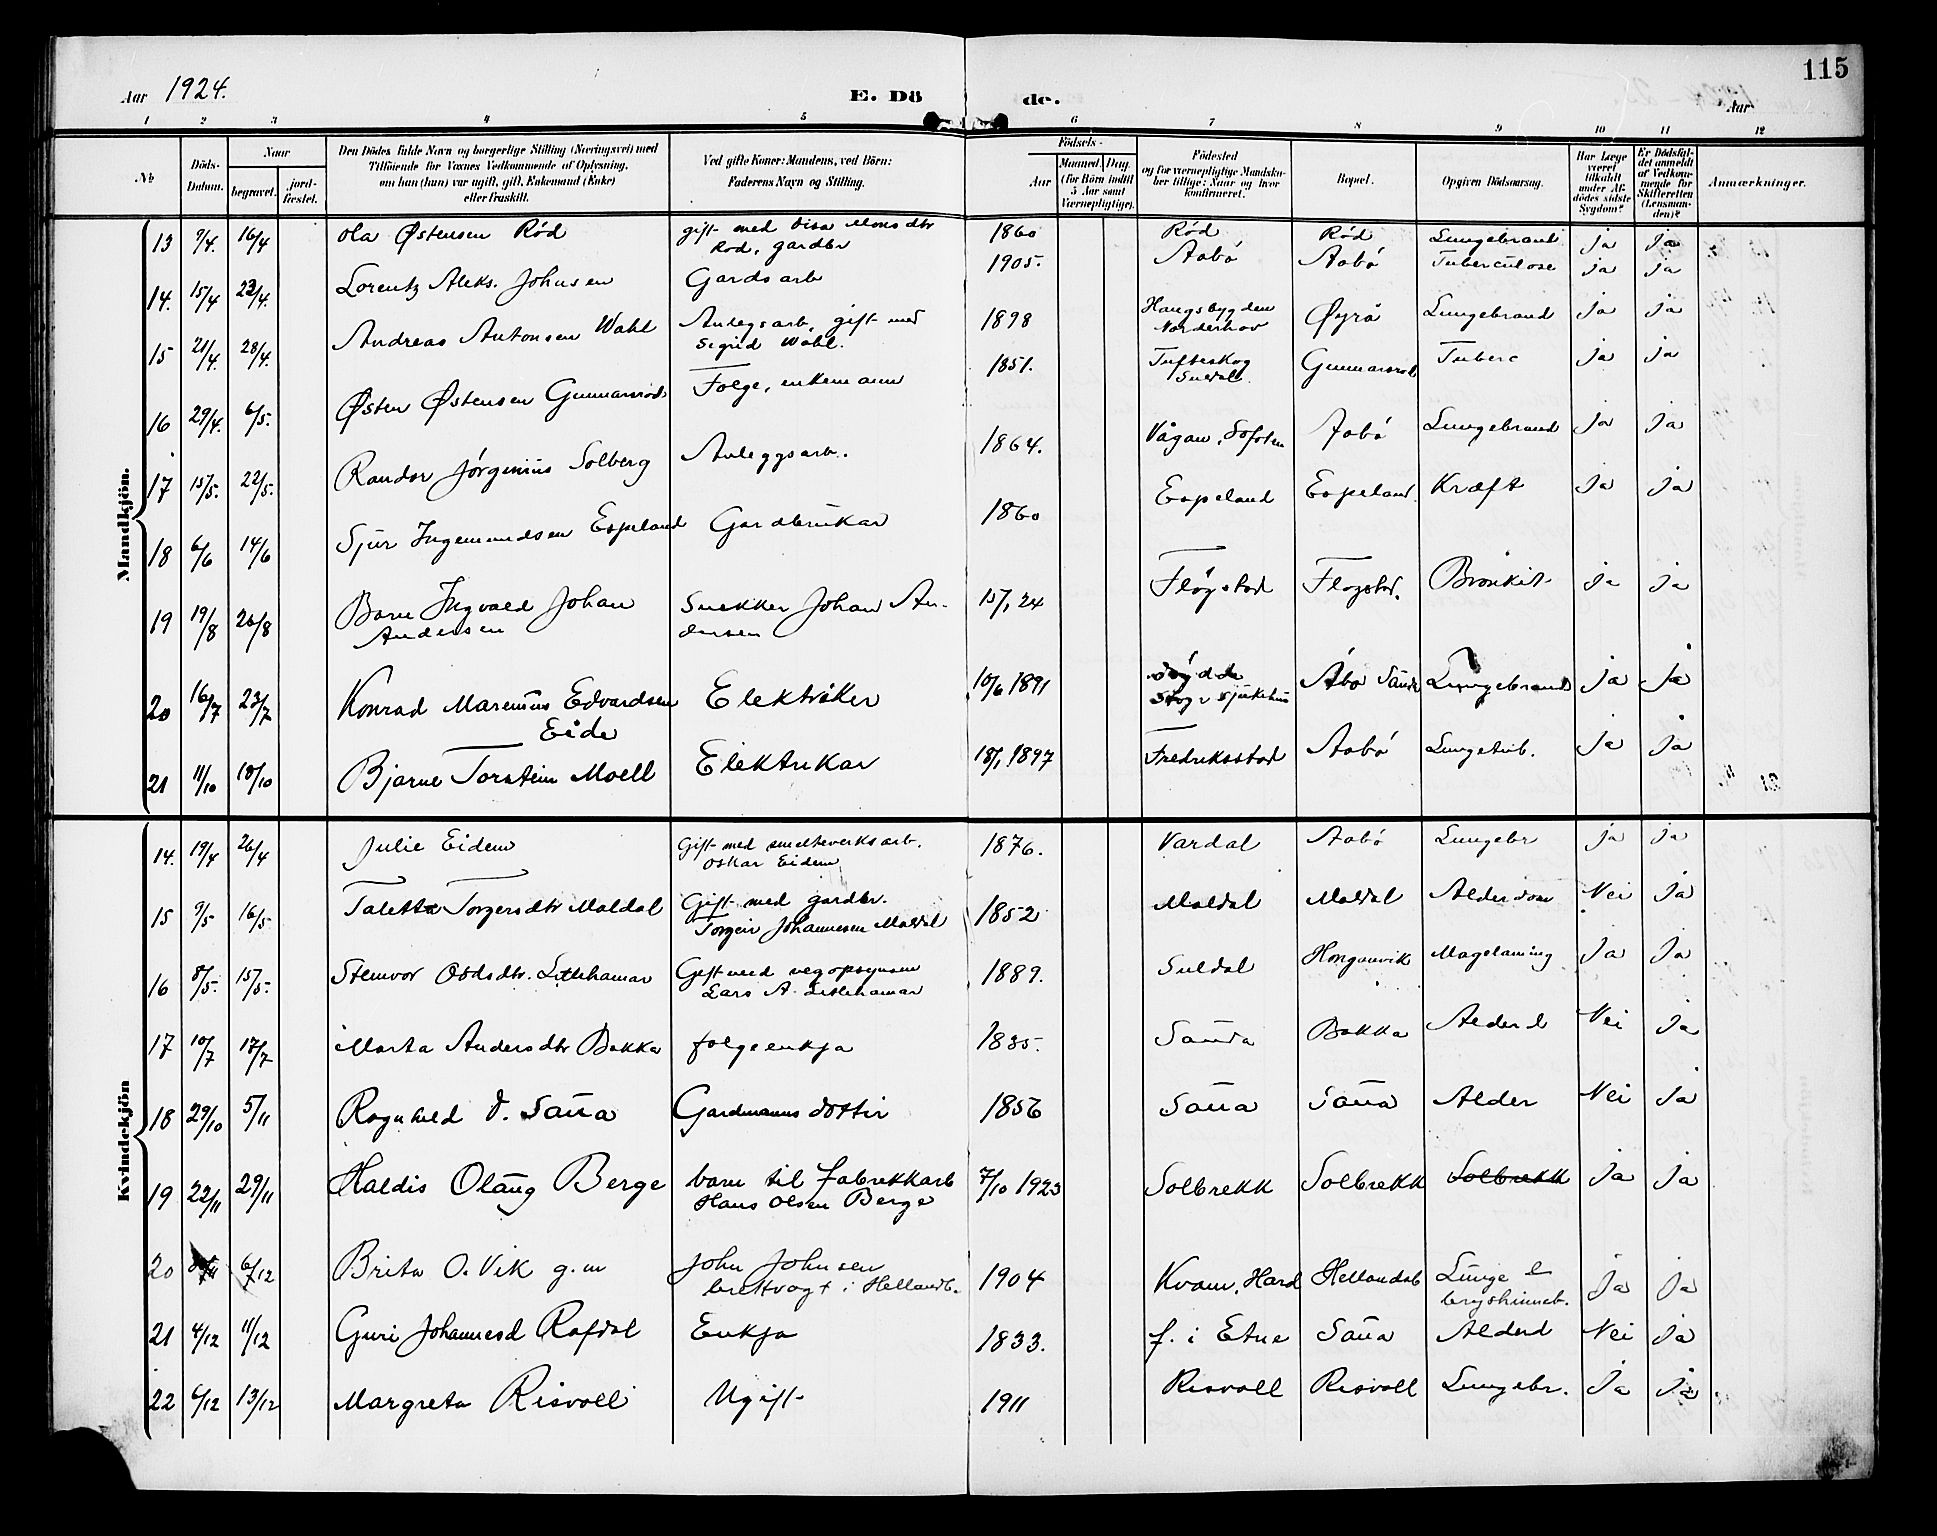 115
Aar 1924. E. Dö de. Aar
1 2 3 4 5 6 7 8 9 10 11 12
No Döds-Datum. Naar begravet. jord-fæstet. Den Dödes fulde Navn og borgerlige Stilling (Næringsvei) med Tilföiende for Voxnes Vedkommende af Oplysning, om han (hun) var ugift, gift, Enkemand (Enke) eller fraskilt. Ved gifte Koner: Mandens, ved Börn: Faderens Navn og Stilling. Födsels- Aar Maaned. Dag. (for Börn indtil 5 Aar samt Værnepligtige). Födested og for værnepligtige Mandskaber tillige: Naar og hvor konfirmeret. Bopæl. Opgiven Dödsaarsag. Har Læge været tilkaldt under Afdödes sidste Sygdom? Er Dödsfaldet anmeldt af Vedkommende for Skifteretten (Lensmanden)? Anmærkninger.
Mandkjön.
13 9/4. 16/4 Ola Østensen Rød gift med Sisa Monsdtr Rød, gardbr 1860 Rød Rød Lungebrand ja ja
14. 15/4 23/4. Lorentz Aleks. Johnsen Gardsarb 1905. Aabø Aabø Tuberculose ja ja
15 21/4. 28/4. Andreas Antonsen Wahl Anlegsarb, gift med Sigrid Wahl. 1898 Haugsbygden Norderhov Øyrå Lungebrand ja ja
16 29/4. 6/5. Østen Østensen Gunnarsrød Folge, enkemann 1851. Tufteskog Suldal. Gunnarsrød Tuberc ja ja
17 15/5. 22/5. Randor Jørginius Solberg Anleggsarb. 1864. Vågan, Lofoten Aabø Lungebrand ja ja
18 6/6 14/6 Sjur Ingemundsen Espeland Gardbrukar 1860 Espeland Espeland. Kræft ja ja
19 19/8 26/8 Barn Ingvald Johan Andersen Snekker Johan Andersen 15/1 24 Fløgstad Flogstad. Bronkit ja ja
20 16/7 23/7 Konrad Marenius Edvardsen Eide Elektriker 10/6 1891 Åbø Sauda Lungebrand ja ja
21 11/10 18/10 Bjarne Torstein Moell Elektrikar 18/1 1897 Fredriksstad Aabø Lungetub. ja ja
Kvindekjön
14. 19/4 26/4 Julie Eidem Gift med smelteverksarb. Oskar Eidem 1876. Vardal Aabø Lungebr ja ja
15 9/5 16/5 Taletta Torgersdtr Maldal Gift med gardbr. Torgeir Johannesen Maldal 1852 Maldal Maldal Alderdom Nei ja
16 8/5. 15/5. Steinvor Oddsdtr. Litlehamar Gift med vegopsynsm Lars A. Litlehamar 1889. Suldal Honganvik Magelaming Ja Ja
17 10/7 17/7 Marta Andersdtr Bakka folgeenkja 1835. Sauda Bakka Alderd Nei ja
18 29/10 5/11 Ragnhild O. Saua Gardmanns dottir 1856 Saua Saua Alder Nei ja
19 22/11 29/11 Haldis Olaug Berge barn til fabrekkarb Hans Olsen Berge 7/10 1923 Solbrekk Solbrekk Solbrekk ja ja
20 6/12 Brita O. Vik g.m John Johnsen brettvogt i Hellandb. 1904 Kvam, Hard Hellandsb Lunge & bryshinneb. ja ja
21 4/12 11/12 Guri Johannesd Rafdal Enkja 1833. f. i Etne Saua Alderd Nei ja
22 6/12 13/12 Margreta Risvoll Ugift 1911 Risvoll Risvoll Lungebr. Ja ja